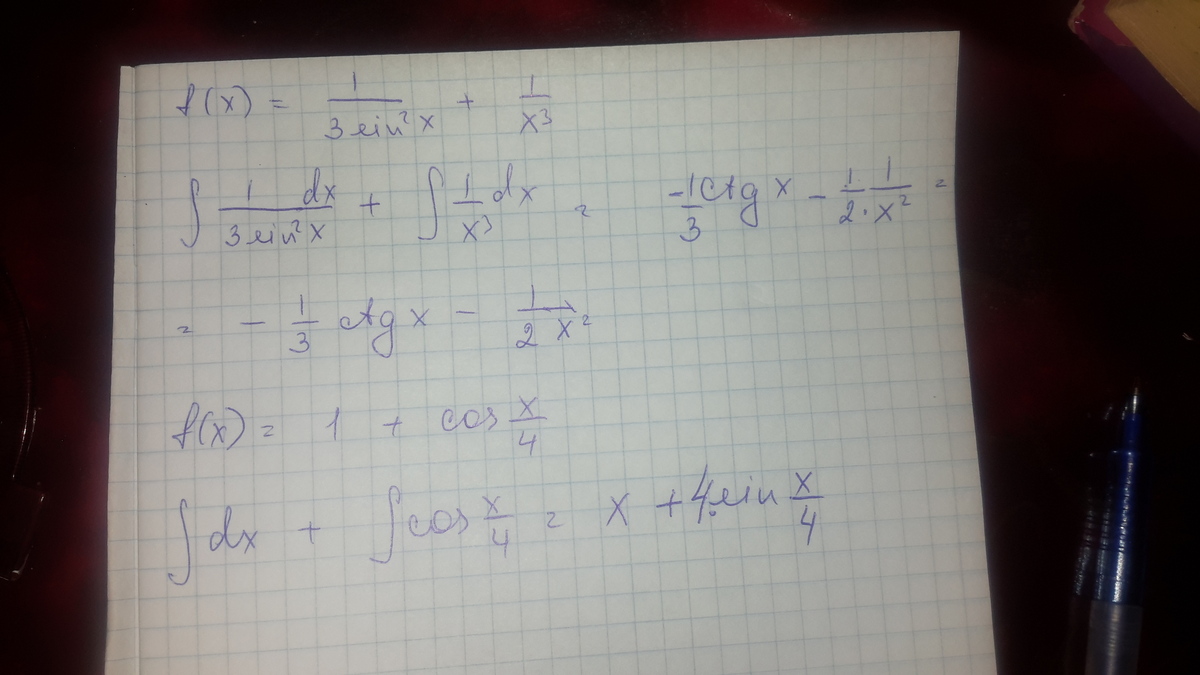 f(x) = 1/(3 sin² x) + 1/x³
∫ 1 dx/(3 sin² x) + ∫ 1/x³ dx = -1/3 ctg x - 1/2 · 1/x² =
= - 1/3 ctg x - 1/(2 x²)
f(x) = 1 + cos x/4
∫ dx + ∫ cos x/4 = x + 4 · sin x/4